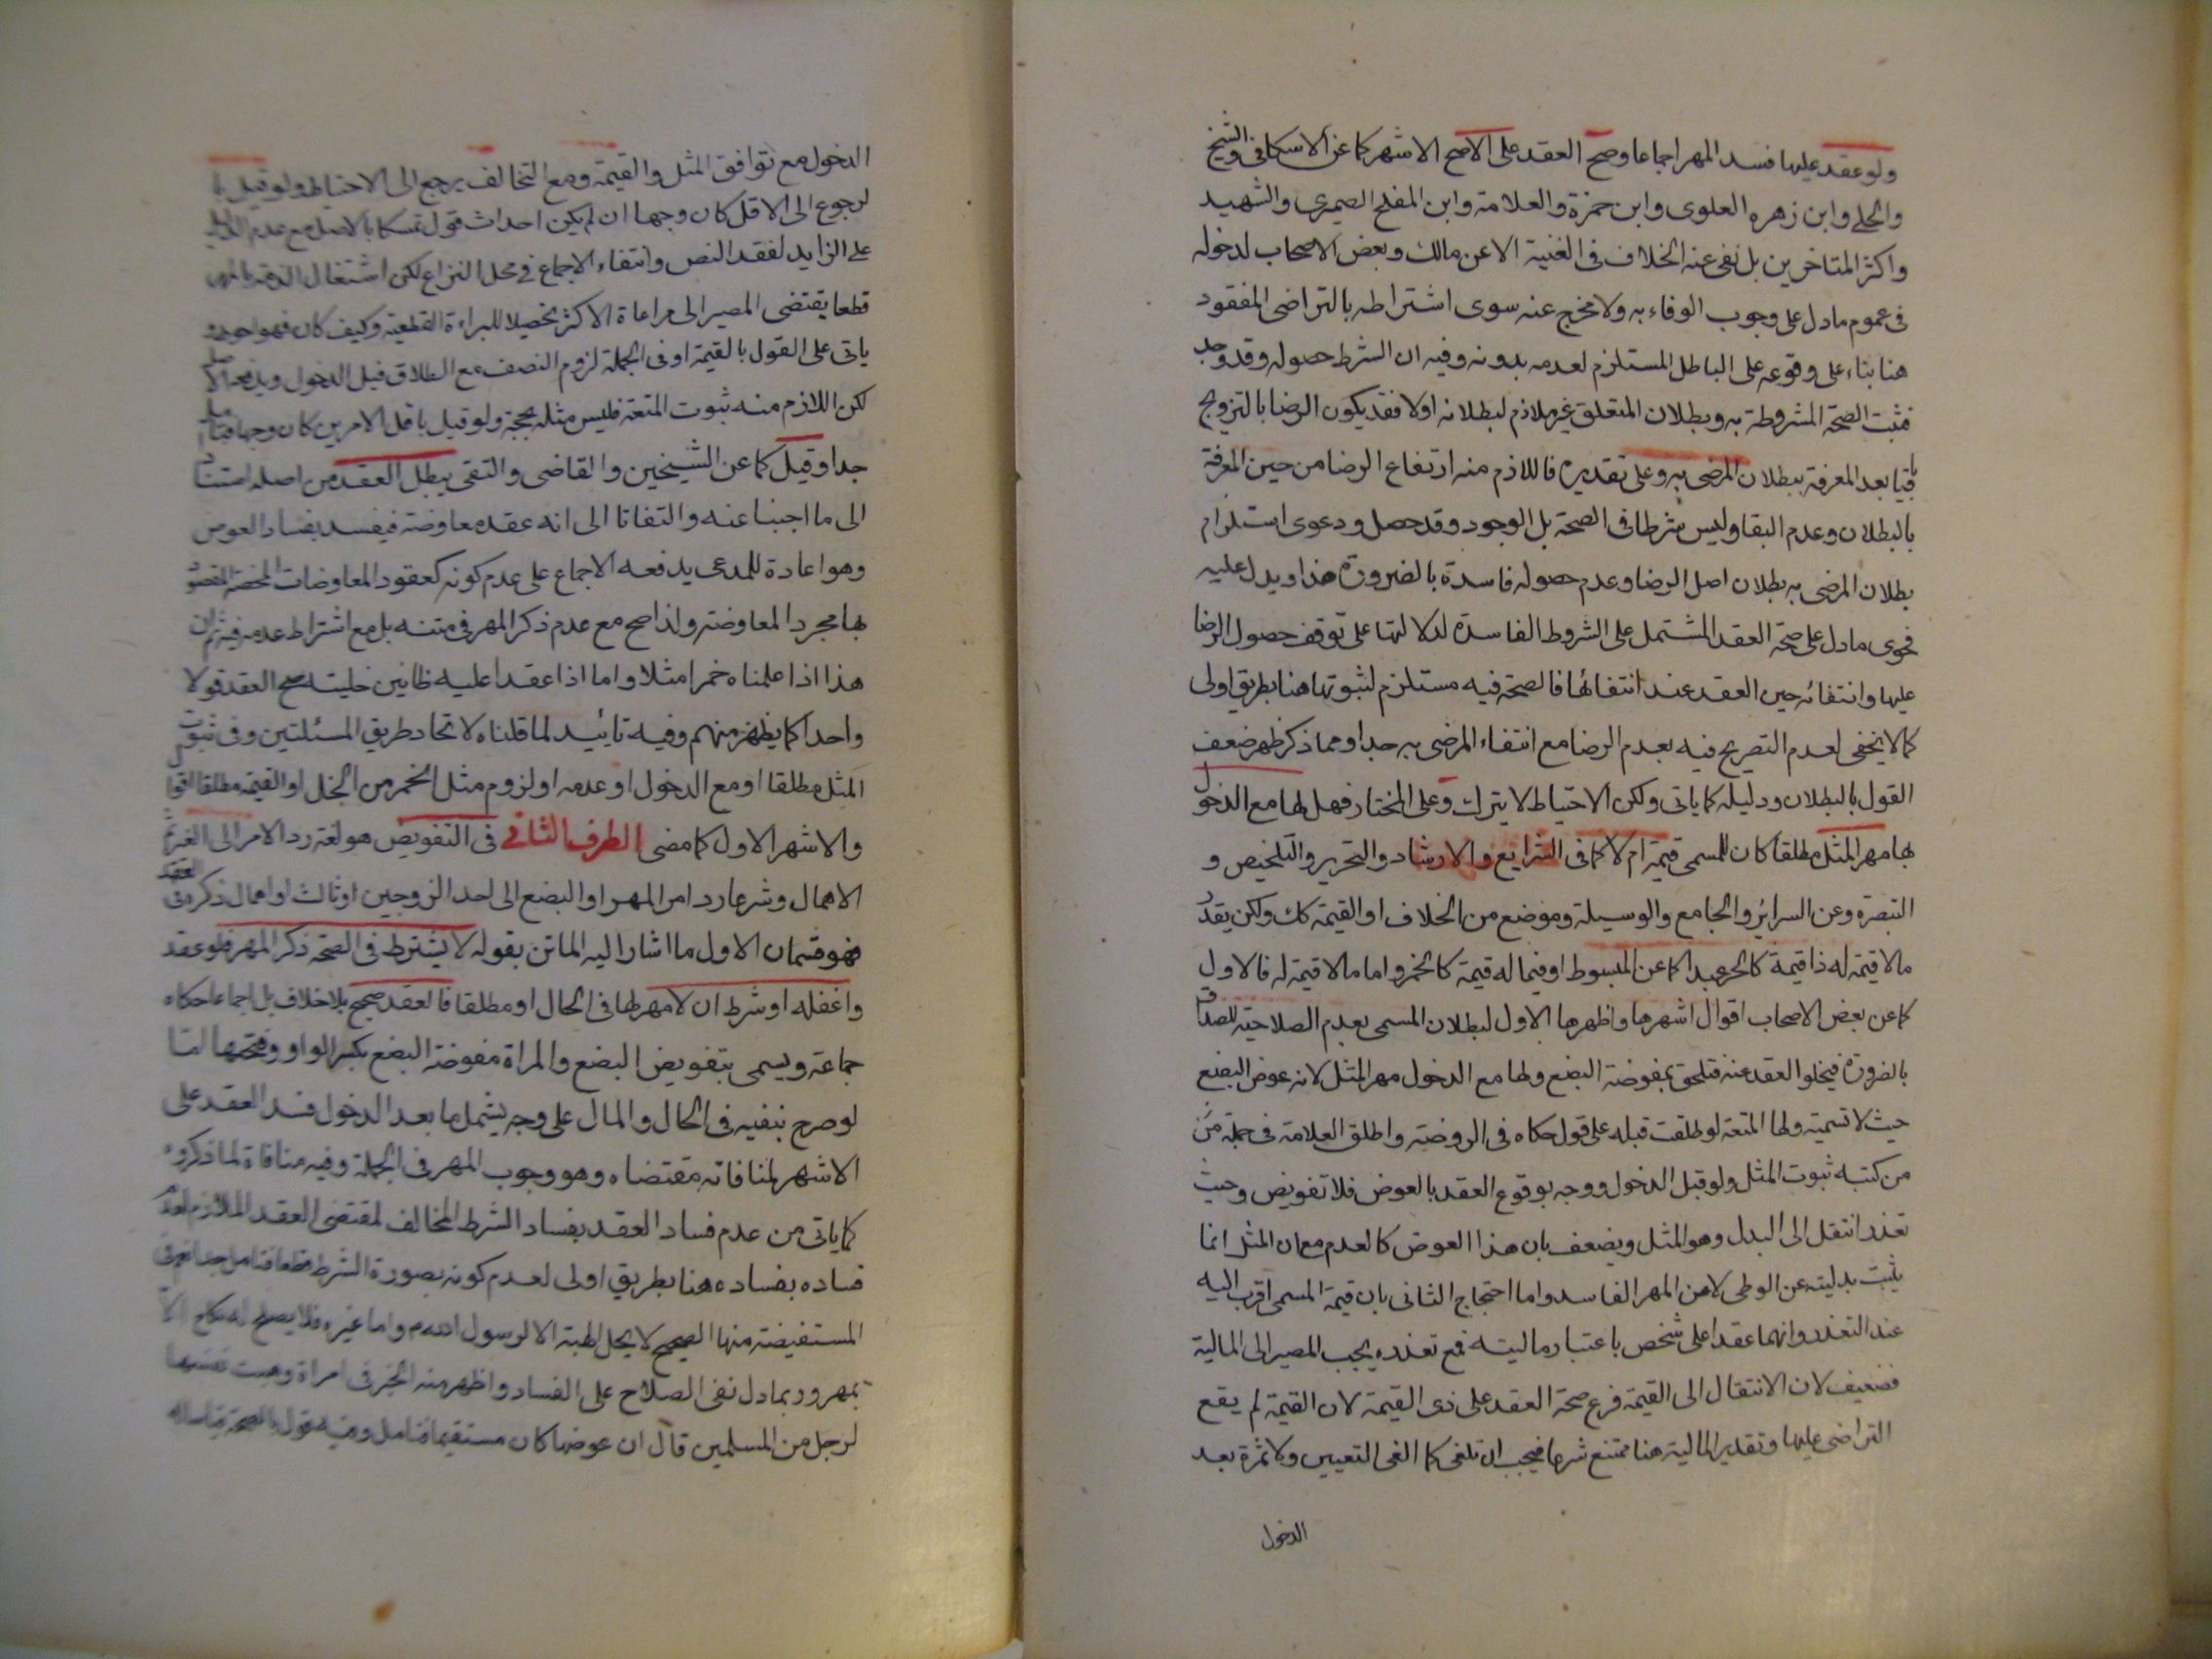 ولو عقد عليها فسد المهر اجماعا وصح العقد على الاصح الاشهر كما عن الاسكافي والشيخ
والحلي وابن زهره العلوى وابن حمزة والعلامة وابن المفلح الصيمرى والشهيد
واكثر المتاخرين بل نفى عنه الخلاف فى الغنية الا عن مالك وبعض الاصحاب لدخوله
فى عموم ما دل على وجوب الوفاء به ولا مخرج عنه سوى اشتراطه بالتراضى المفقود
هنا بناء على وقوعه على الباطل المستلزم لعدمه بدونه وفيه ان الشرط حصوله وقد وجد
فثبت الصحة المشروطة به وبطلان المتعلق غير ملازم لبطلانه اولا فقد يكون الرضا بالتزويج
باقيا بعد المعرفة ببطلان المرضى به وعلى تقديره فاللازم منه ارتفاع الرضا من حين المعرفة
بالبطلان وعدم البقا وليس شرطا فى الصحة بل الوجود وقد حصل ودعوى استلزام
بطلان المرضى به بطلان اصل الرضا وعدم حصوله فاسدة بالضرورة هذا ويدل عليه
فحوى ما دل على صحة العقد المشتمل على الشروط الفاسدة لدلالتها على توقف حصول الرضا
عليها وانتفائه حين العقد عند انتفائها فالصحة فيه مستلزم لثبوتها هنا بطريق اولى
كما لا يخفى لعدم التصريح فيه بعدم الرضا مع انتفاء المرضى به جدا ومما ذكر ظهر ضعف
القول بالبطلان ودليله كما ياتى ولكن الاحتياط لا يترك وعلى المختار فهل لها مع الدخول
بها مهر المثل مطلقا كان للمسمى قيمة ام لا كما فى الشرايع والارشاد والتحرير والتلخيص و
التبصرة وعن السرائر والجامع والوسيلة وموضع من الخلاف او القيمة كك ولكن يقدر
ما لا قيمة له ذا قيمة كالحر عبدا كما عن المبسوط او فيما له قيمة كالخمر واما ما لا قيمة له فالاول
كما عن بعض الاصحاب اقوال اشهرها واظهرها الاول لبطلان المسمى بعدم الصلاحية للصداق
بالضرورة فيخلو العقد عنه فتلحق بمفوضة البضع ولها مع الدخول مهر المثل لانه عوض البضع
حيث لا تسمية ولها المتعة لو طلقت قبله على قول حكاه فى الروضه واطلق العلامة فى جملة من
من كتبه ثبوت المثل ولو قبل الدخول ووجه بوقوع العقد بالعوض فلا تفويض وحيث
تعذر انتقل الى البدل وهو المثل ويضعف بان هذا العوض كالعدم مع ان المثل انما
يثبت بدليته عن الوطى لا من المهر الفاسد واما احتجاج الثانى بان قيمة المسمى اقرب اليه
عند التعذر وانهما عقدا على شخص باعتبار ماليته فمع تعذره يجب المصير الى المالية
فضعيف لان الانتقال الى القيمة فرع صحة العقد على ذى القيمة لان القيمة لم يقع
التراضى عليها وتقدير المالية هنا ممتنع شرعا فيجب ان تلغى كما الغى التعيين ولا ثمرة بعد
الدخول
الدخول مع توافق المثل والقيمة ومع التخالف يرجع الى الاحتياط ولو قيل
لرجوع الى الاقل كان وجها ان لم يكن احداث قول تمسكا بالاصل مع عدم الدليل
على الزايد لفقد النص وانتفاء الاجماع فى محل النزاع لكن اشتغال الذمة بالمهر
قطعا يقتضى المصير الى مراعاة الاكثر تحصيلا للبراءة القطعية وكيف كان فهو احوط و
ياتى على القول بالقيمة او فى الجملة لزوم النصف مع الطلاق قبل الدخول ويدفعه الاصل
لكن اللازم منه ثبوت المتعة فليس مثله بحجة ولو قيل باقل الامرين كان وجها فتامل
جدا وقيل كما عن الشيخين والقاضى والتقى يبطل العقد من اصله استنادا
الى ما اجبنا عنه والتفاتا الى انه عقد معاوضة فيفسد بفساد العوض
وهو اعادة للمدعى يدفعه الاجماع على عدم كونه كعقود المعاوضات المحضة المقصود
بها مجرد المعاوضة ولذا صح مع عدم ذكر المهر فى متنه بل مع اشتراط عدمه فيه ثم ان
هذا اذا علمناه خمرا مثلا واما اذا عقدا عليه ظانين خليته صح العقد قولا
واحدا كما يظهر منهم وفيه تائيد لما قلناه لاتحاد طريق المسئلتين وفى ثبوت
المثل مطلقا او مع الدخول او عدمه او لزوم مثل الخمر من الخل او القيمة مطلقا اقوال
والاشهر الاول كما مضى الطرف الثانى فى التفويض هو لغة رد الامر الى الغير ثم
الاهمال وشرعا رد امر المهر او البضع الى احد الزوجين او ثالث او اهمال ذكره فى العقد
فهو قسمان الاول ما اشار اليه الماتن بقوله لا يشترط فى الصحة ذكر المهر فلو عقد
واغفله او شرط ان لا مهر لها فى الحال او مطلقا فالعقد صحيح بلا خلاف بل اجماعا حكاه
جماعة ويسمى بتفويض البضع والمراة مفوضة البضع بكسر الواو وفتحها
لو صرح بنفيه فى الحال والمال على وجه يشمل ما بعد الدخول فسد العقد على
الاشهر لمنافاته مقتضاه وهو وجوب المهر فى الجملة وفيه منافاة لما ذكروه
كما ياتى من عدم فساد العقد بفساد الشرط المخالف لمقتضى العقد الملازم لعدم
فساده بفساده هنا بطريق اولى لعدم كونه بصورة الشرط قطعا فتامل جدا نعم فى
المستفيضة منها الصحيح لا يحل الهبة الا لرسول الله ص واما غيره فلا يصلح له نكاح الا
بمهر وربما دل نفى الصلاح على الفساد واظهر منه الخبر فى امراة وهبت نفسها
لرجل من المسلمين قال ان عوضها كان مستقيما فتامل وفيه قول بالصحة